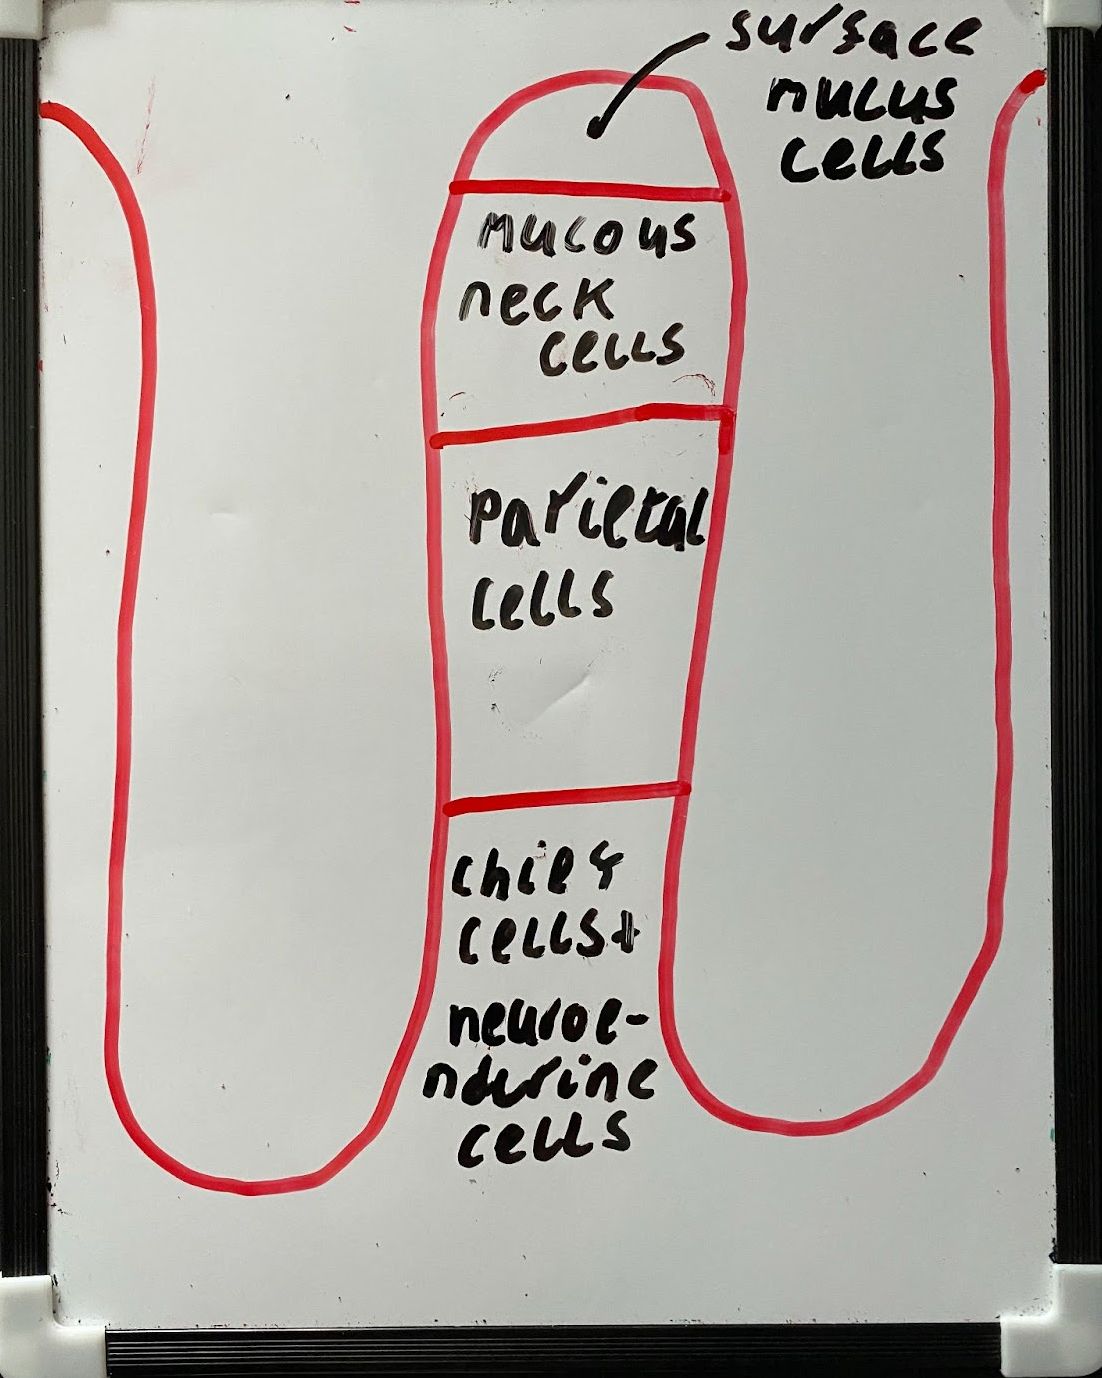 surface
mucus
cells
mucous
neck
cells
parietal
cells
chief
cells+
neuroe-
ndcrine
cells